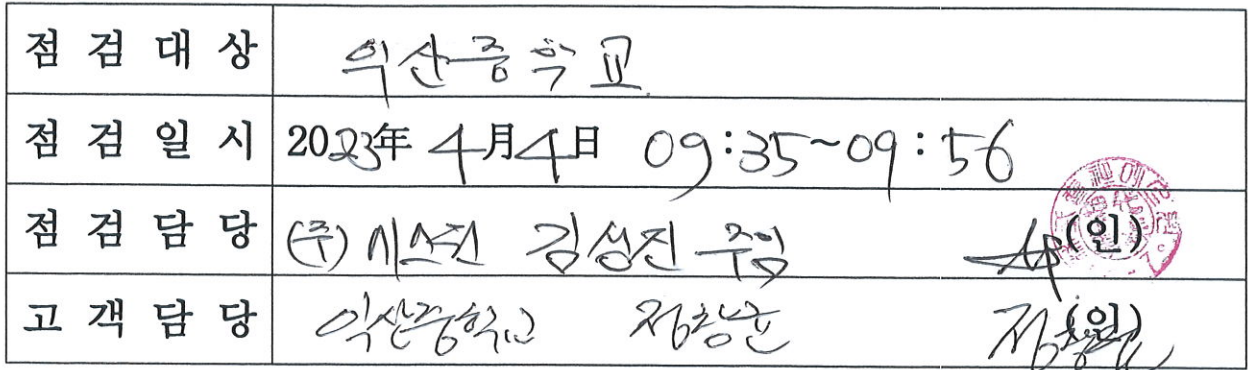 점 검 대 상 익산중학교
점 검 일 시 2023年 4月4日 09:35~09:56
점 검 담 당 (주) 시스진 김성진 주임 (인)
고 객 담 당 익산중학교 정창균 (인)